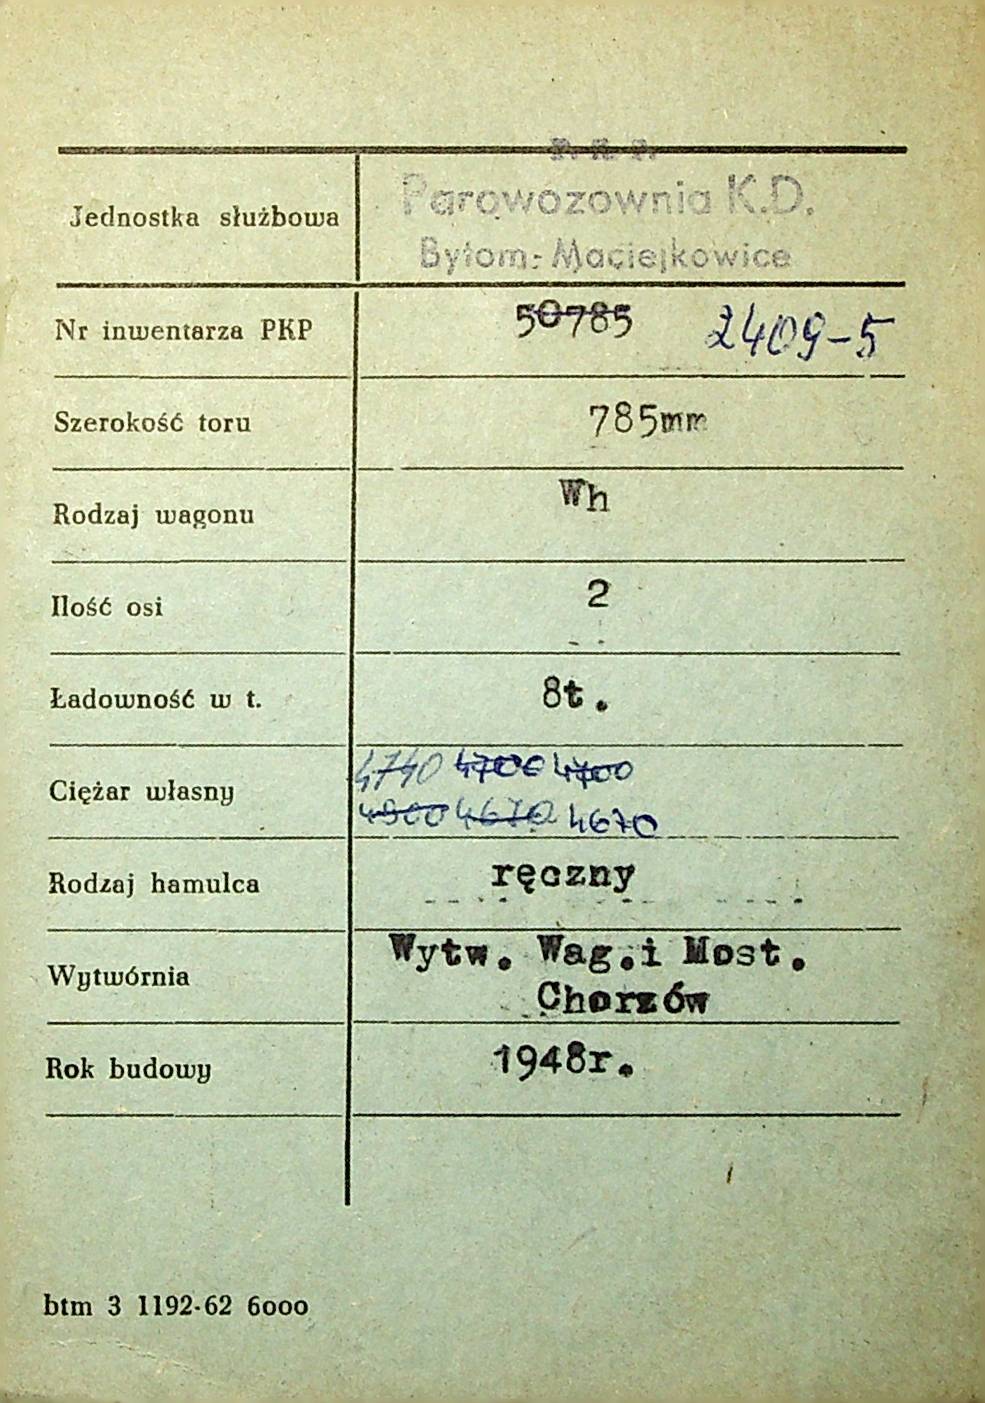 P. K. P.
Jednostka służbowa Parowozownia K.D.
Bytom-Maciejkowice
Nr inwentarza PKP 50785 2409-5
Szerokość toru 785mm
Rodzaj wagonu Wh
Ilość osi 2
Ładowność w t. 8t.
Ciężar własny 4740 4700 4700
4800 4670 4670
Rodzaj hamulca ręczny
Wytwórnia Wytw. Wag.i Most.
Chorzów
Rok budowy 1948r.
btm 3 1192-62 6000